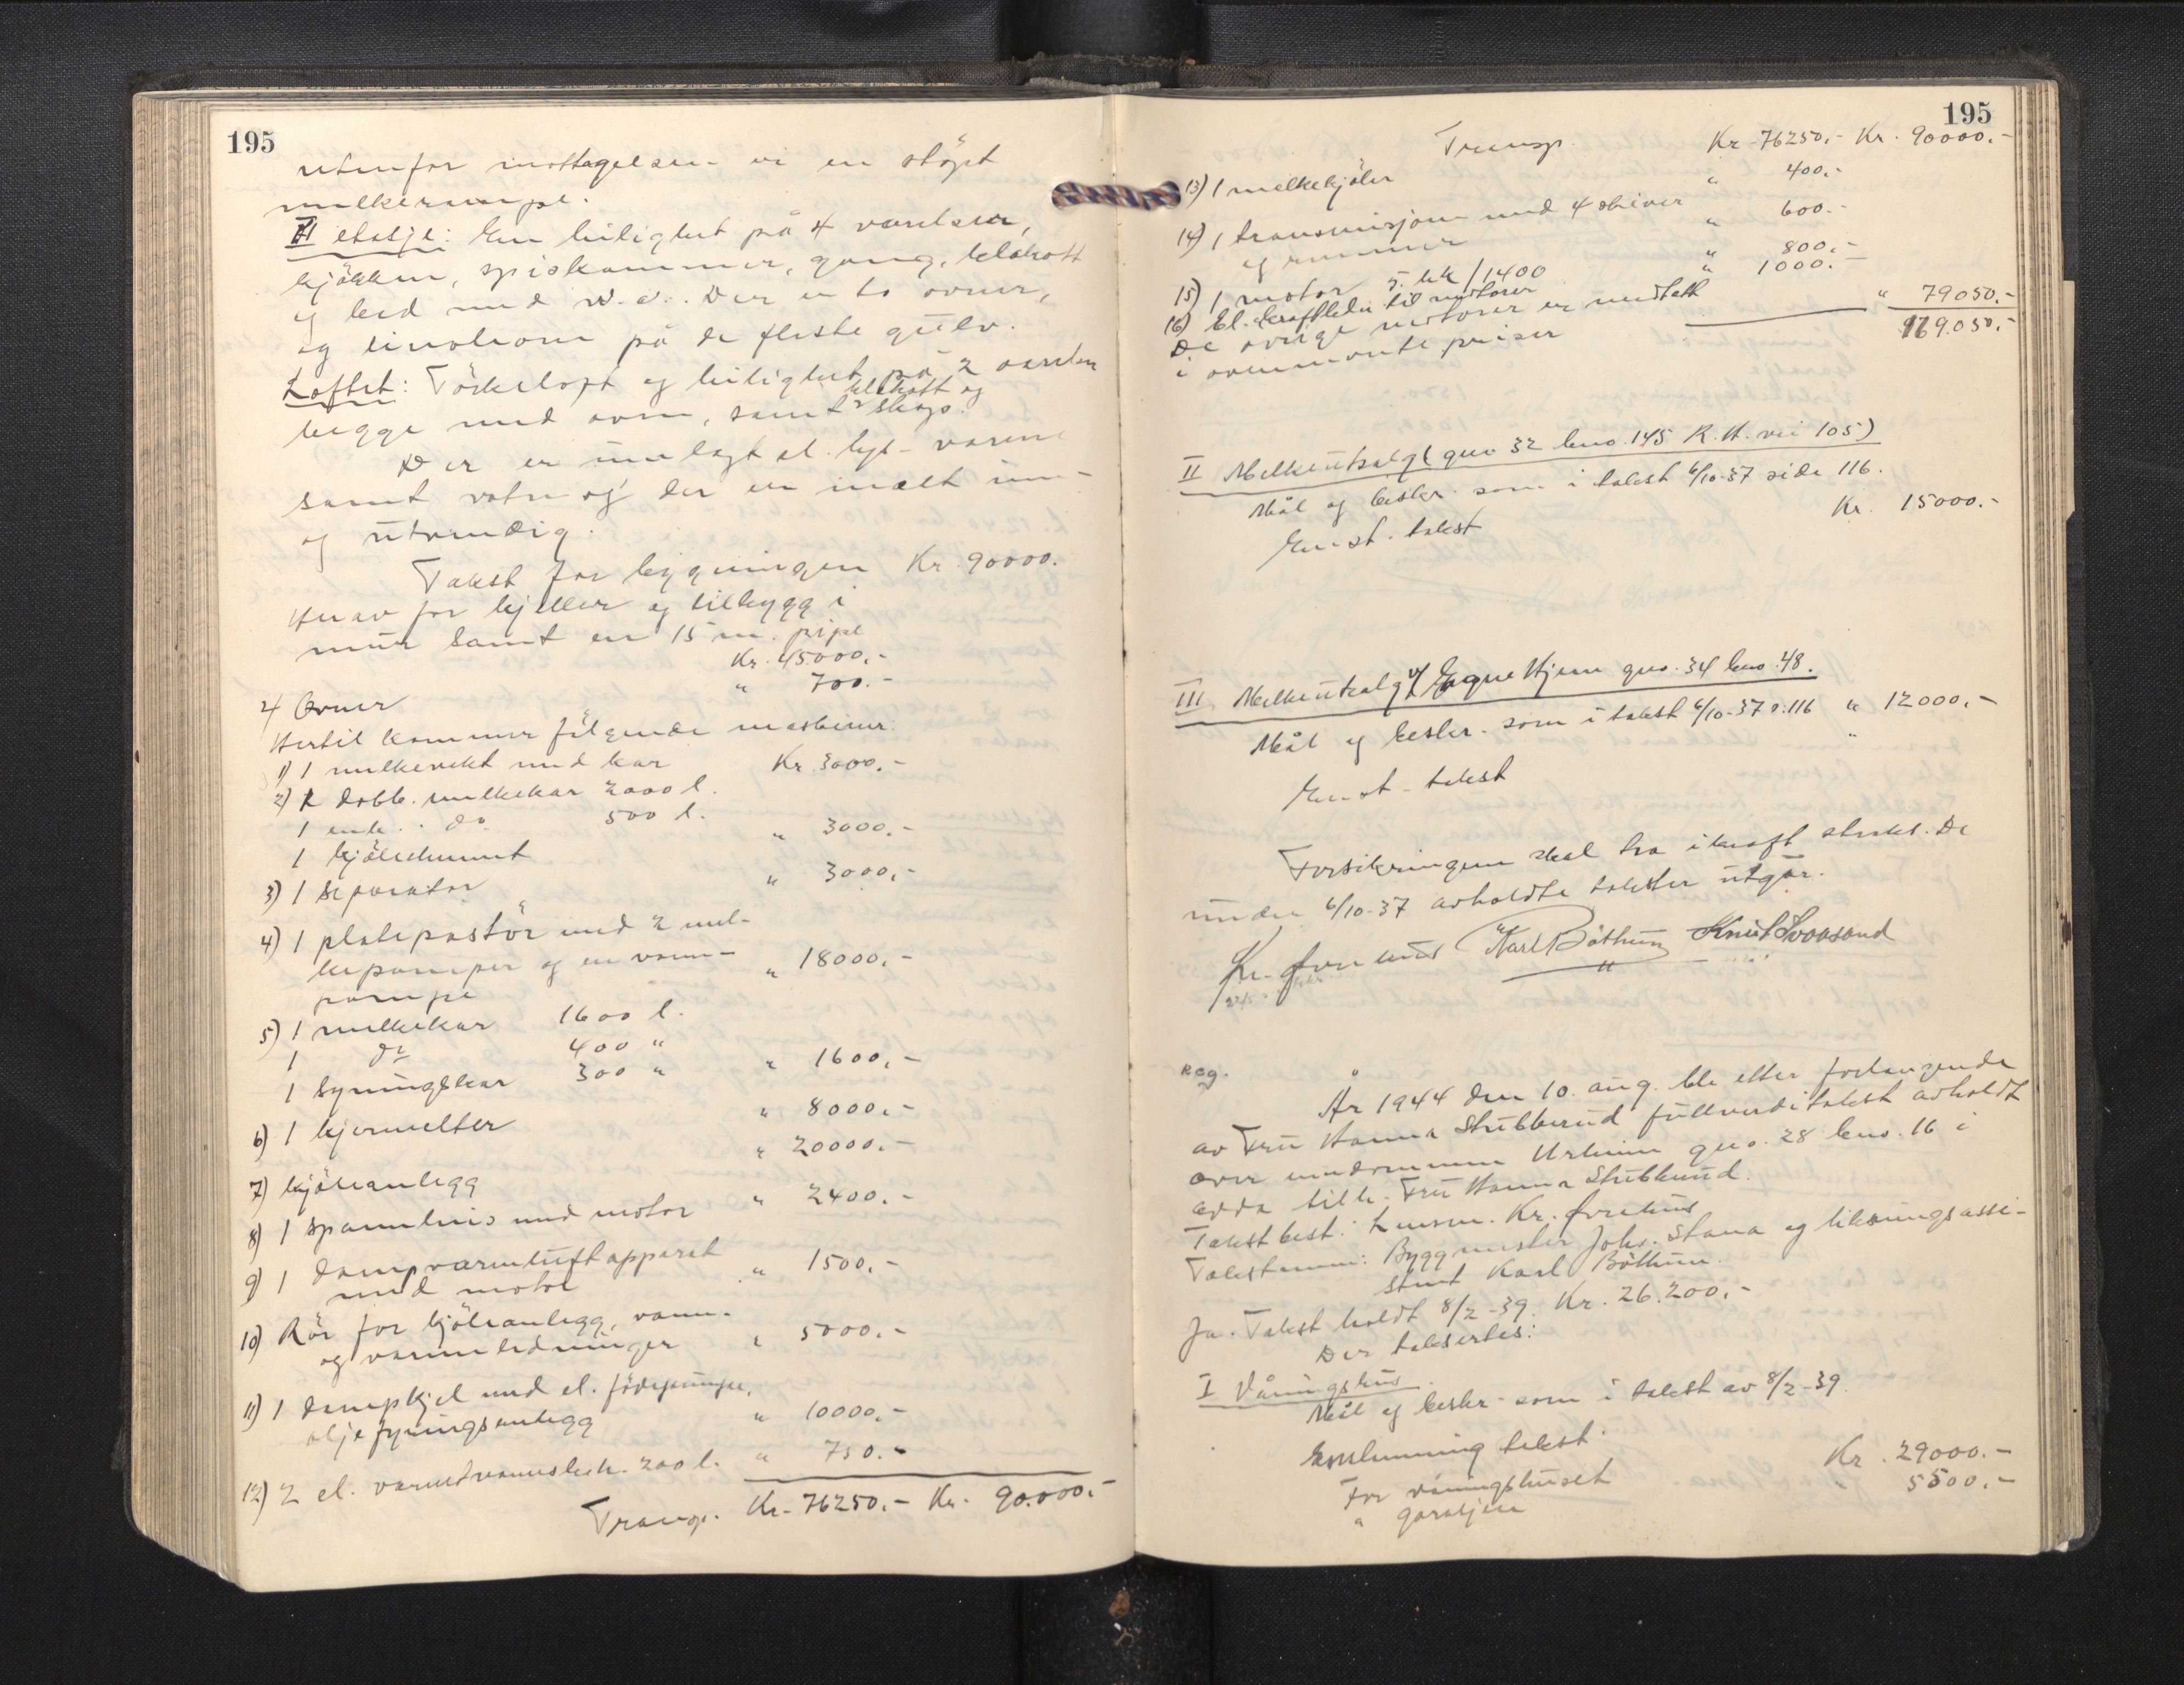 195
utenfor mottagelsen vi en støpt
melkerampe.
II etasje: En leilighet på 4 værelser,
kjøkken, spiskammer, gang, klekott
og bad med w.c. Der er to ovner,
og linoleom på de fleste gulv.
Loftet: Tørkeloft og leilighet på 2 værelser
klekott og
begge med ovn, samt 2 skap.
Der er innlagt el. lys - varme
samt vatn og der er malt inn-
og utvendig.
Takst for bygningen Kr. 90000.
Herav for kjeller og tilbygg i
mur samt en 15 m. pipe
Kr. 45000.-
4 Ovner " 700.-
Hertil kommer følgende maskiner.
1) 1 melkevekt med kar Kr. 3000.-
2) 1 dobb. melkekar 2000 l.
1 enk. do 500 l.
1 kjøleelement " 3000.-
3) 1 separator " 3000.-
4) 1 platepastør med 2 mel-
kepumper og en vann-
pumpe " 18000.-
5) 1 melkekar 1600 l.
1 do 400 "
1 syrningskar 300 " " 1600.-
6) 1 kjernelter " 8000.-
7) kjøleanlegg " 20000.-
8) 1 spannheis med motor " 2400.-
9) 1 dampvarmluftapparat
med motor " 1500.-
10) Rør for kjøleanlegg, vann-
og varmeledninger " 5000.-
11) 1 dampkjel med el. fødepumpe,
oljefyringsanlegg " 10000.-
12) 2 el. varmtvannsbeh. 200 l. " 750.-
Transp. Kr. 76250.- Kr. 90.000.-
195
Transp. Kr. 76250.- Kr. 90000.-
13) 1 melkekjøler " 400.-
14) 1 transmisjon med 4 skiver
og remmer " 600.-
15) 1 motor 5 hk/1400 " 800.-
16) El. kraftledn til motorer " 1000.-
De øvrige motorer er medtatt
i ovennevnte priser " 79050.-
169.050.-
II Melkeutsalg (gno 32 bno. 145 R.H. vei 105)
Mål og beskr. som i takst 6/10-37 side 116.
Enst. takst Kr. 15000.-
III Melkeutsalg v/ Hjem gno. 34 bno. 48.
Mål og beskr. som i takst 6/10-37 s. 116 " 12000.-
Enst. takst "
Forsikringen skal tre i kraft straks. De
under 6/10-37 avholdte takster utgår.
Karl Bøthun Knut Svaasand
Reg.
År 1944 den 10. aug. ble etter forlangende
av Fru Hanna Stubberud fullverditakst avholdt
over eiendommen Urheim gno. 28 bno. 16 i
Odda tilh. Fru Hanna Stubberud.
Takstbest: Lensm. Kr.
Takstmenn: Byggmester Johs. Stana og likningsassi-
stent Karl Bøthun.
Ja. Takst holdt 8/2-39. Kr. 26.200.-
Der takseres:
I Våningshus.
Mål og beskr. som i takst av 8/2-39.
Enstemmig takst.
For våningshuset Kr. 29000.-
" garasjen " 5500.-